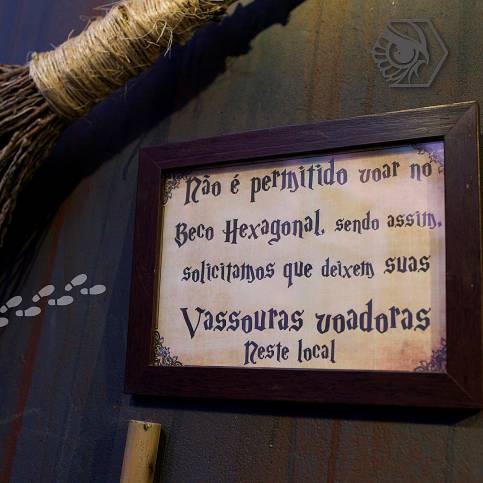 Não é permitido voar no
Beco Hexagonal, sendo assim,
solicitamos que deixem suas
Vassouras voadoras
Neste local